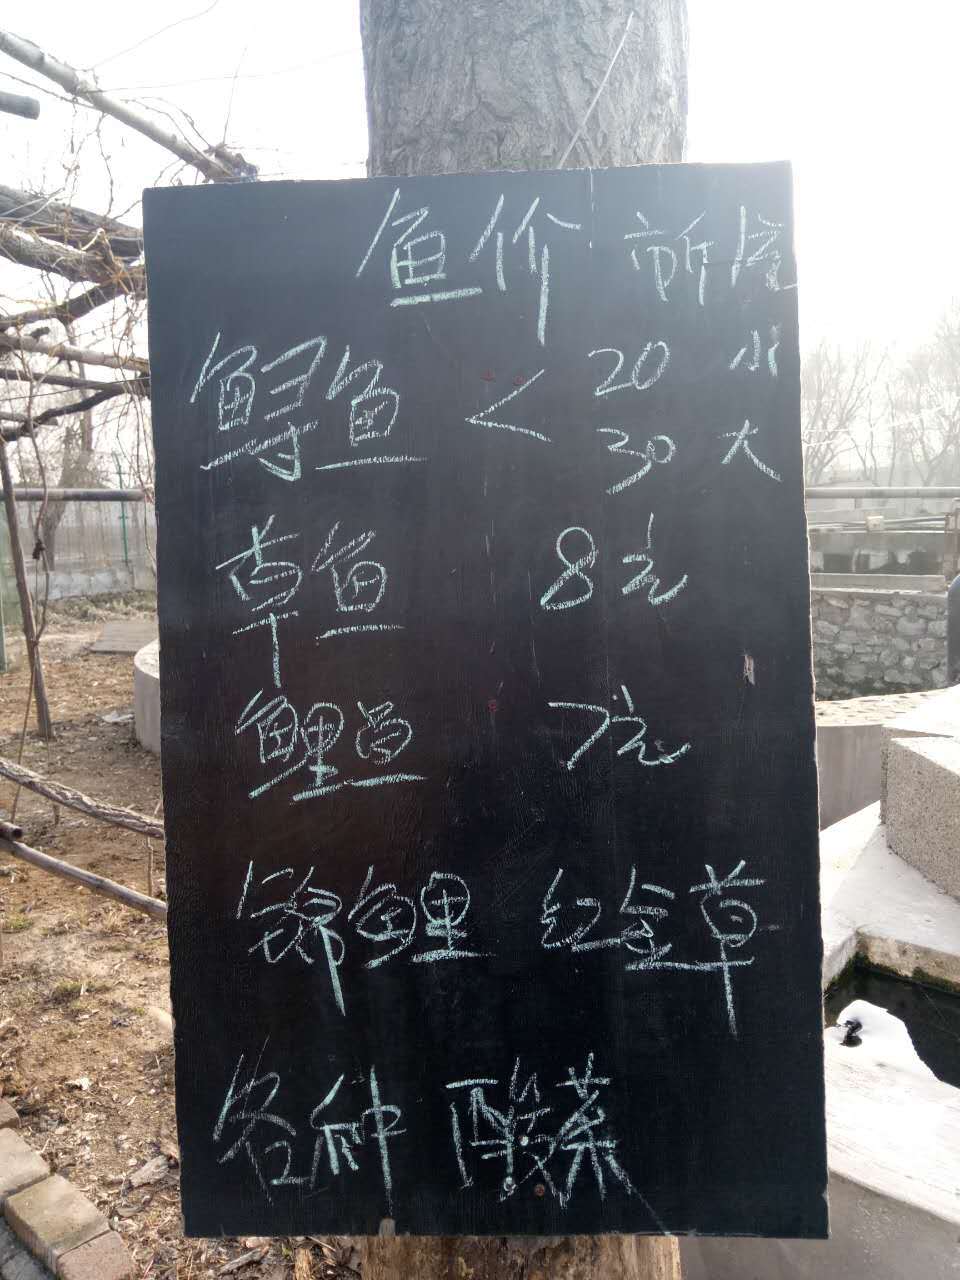 鱼价
鲟鱼 < 20 小
30 大
草鱼 8元
鲤鱼 7元
锦鲤 红金草
各种 酸菜